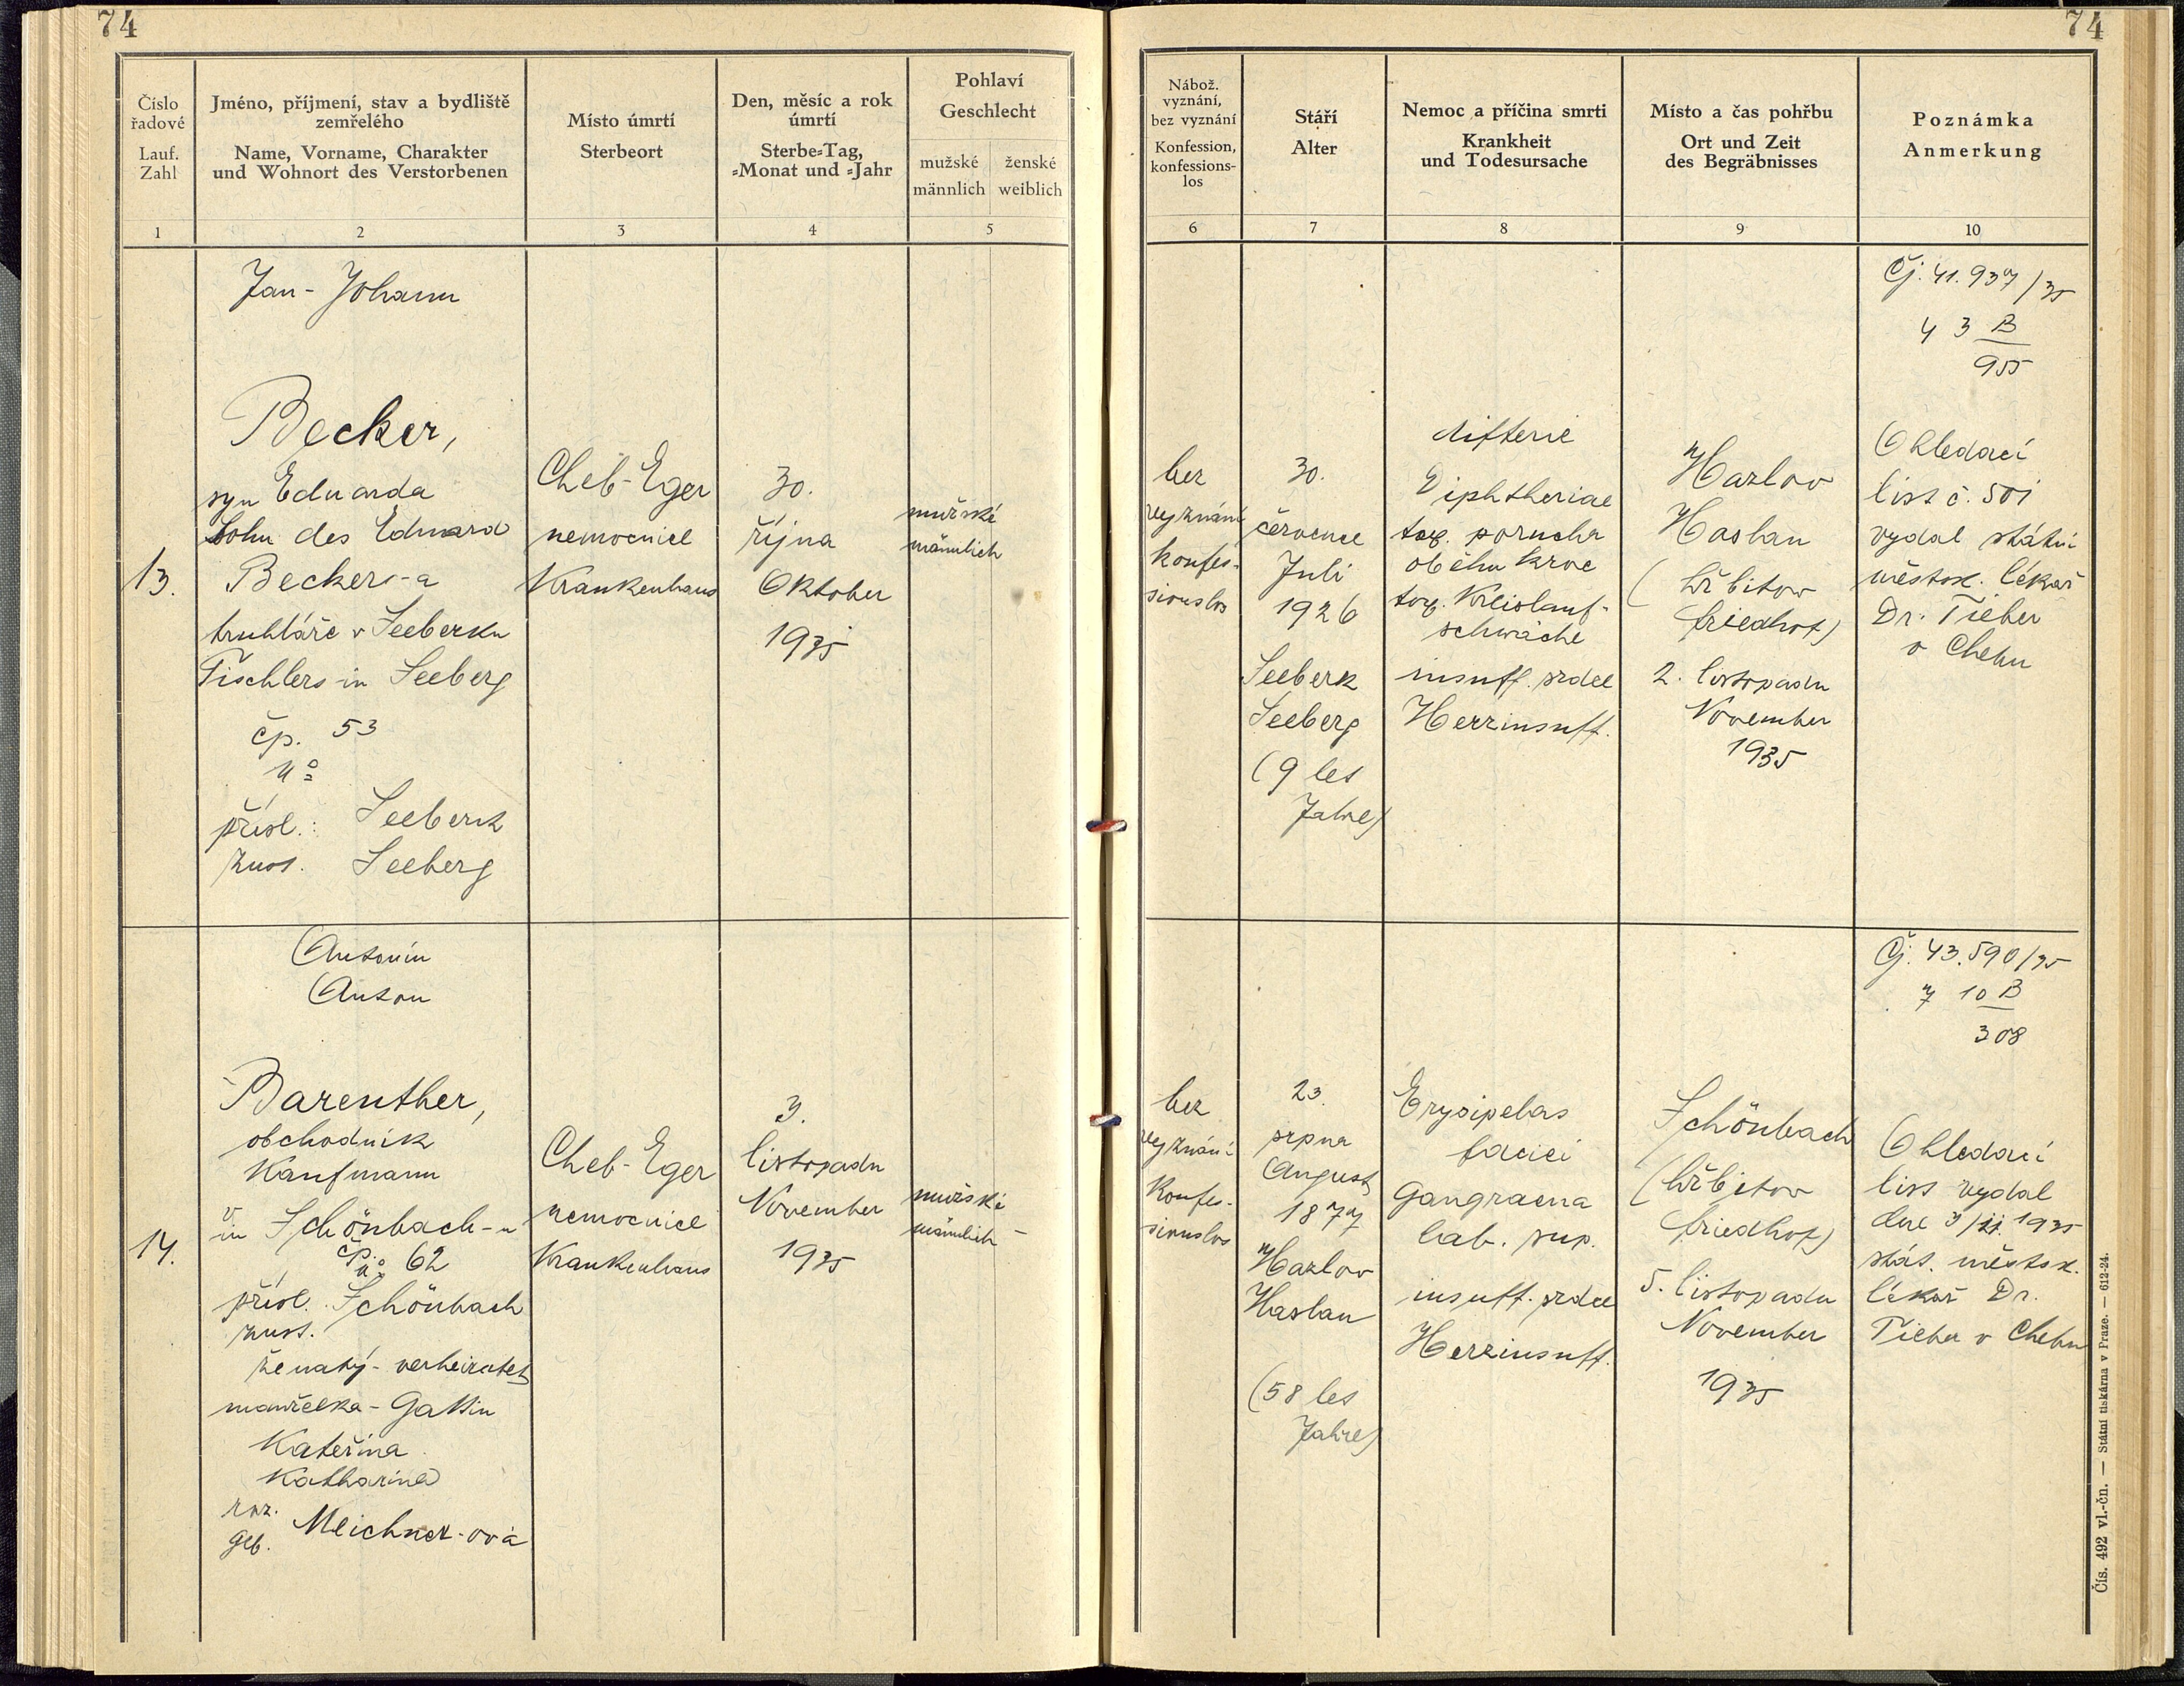 74
74
Číslo
řadové
Lauf.
Zahl
Jméno, příjmení, stav a bydliště
zemřelého
Name, Vorname, Charakter
und Wohnort des Verstorbenen
Místo úmrtí
Sterbeort
Den, měsíc a rok
úmrtí
Sterbe=Tag,
=Monat und =Jahr
Pohlaví
Geschlecht
mužské
männlich
ženské
weiblich
Nábož.
vyznání,
bez vyznání
Konfession,
konfessions-
los
Stáří
Alter
Nemoc a příčina smrti
Krankheit
und Todesursache
Místo a čas pohřbu
Ort und Zeit
des Begräbnisses
Poznámka
Anmerkung
1
2
3
4
5
6
7
8
9
10
13.
Jan - Johann
Becker,
syn Eduarda
Sohn des Eduard
Beckers-a
truhláře v Seeberku
Tischlers in Seeberg
čp. 53
No
přísl.: Seeberk
zust. Seeberg
Cheb-Eger
nemocnice
Krankenhaus
30.
října
Oktober
1935
mužské
männlich
bez
vyznání
konfes-
sionslos
30.
července
Juli
1926
Seeberk
Seeberg
(9 let
Jahre)
difterie
Diphtheriae
tox. porucha
oběhu krve
tox. Kreislauf-
schwäche
insuff. srdce
Herzinsuff.
Hazlov
Haslau
(hřbitov
friedhof)
2. listopadu
November
1935
Čj. 41.937/35
4 3 B
955
Ohledací
list č. 501
vydal státní
městsk. lékař
Dr. Tieber
v Chebu
14.
Antonín
Anton
Barenther,
obchodník
Kaufmann
v
in Schönbach-u
čp.
No 62
přísl. Schönbach
zust.
ženatý - verheiratet
manželka - Gattin
Kateřina
Katharina
roz.
geb. Meichner-ová
Cheb-Eger
nemocnice
Krankenhaus
3.
listopadu
November
1935
mužské
männlich -
bez
vyznání
Konfes-
sionslos
23.
srpna
August
1877
Hazlov
Haslau
(58 let
Jahre)
Erysipelas
faciei
Gangraena
lab. sup.
insuff. srdce
Herzinsuff.
Schönbach
(hřbitov
friedhof)
5. listopadu
November
1935
Čj. 43.590/35
7 10 B
308
Ohledací
list vydal
dne 3/11 1935
stát. městsk.
lékař Dr.
Tieber v Chebu
Čís. 492 vl.-čn. — Státní tiskárna v Praze. — 612-24.